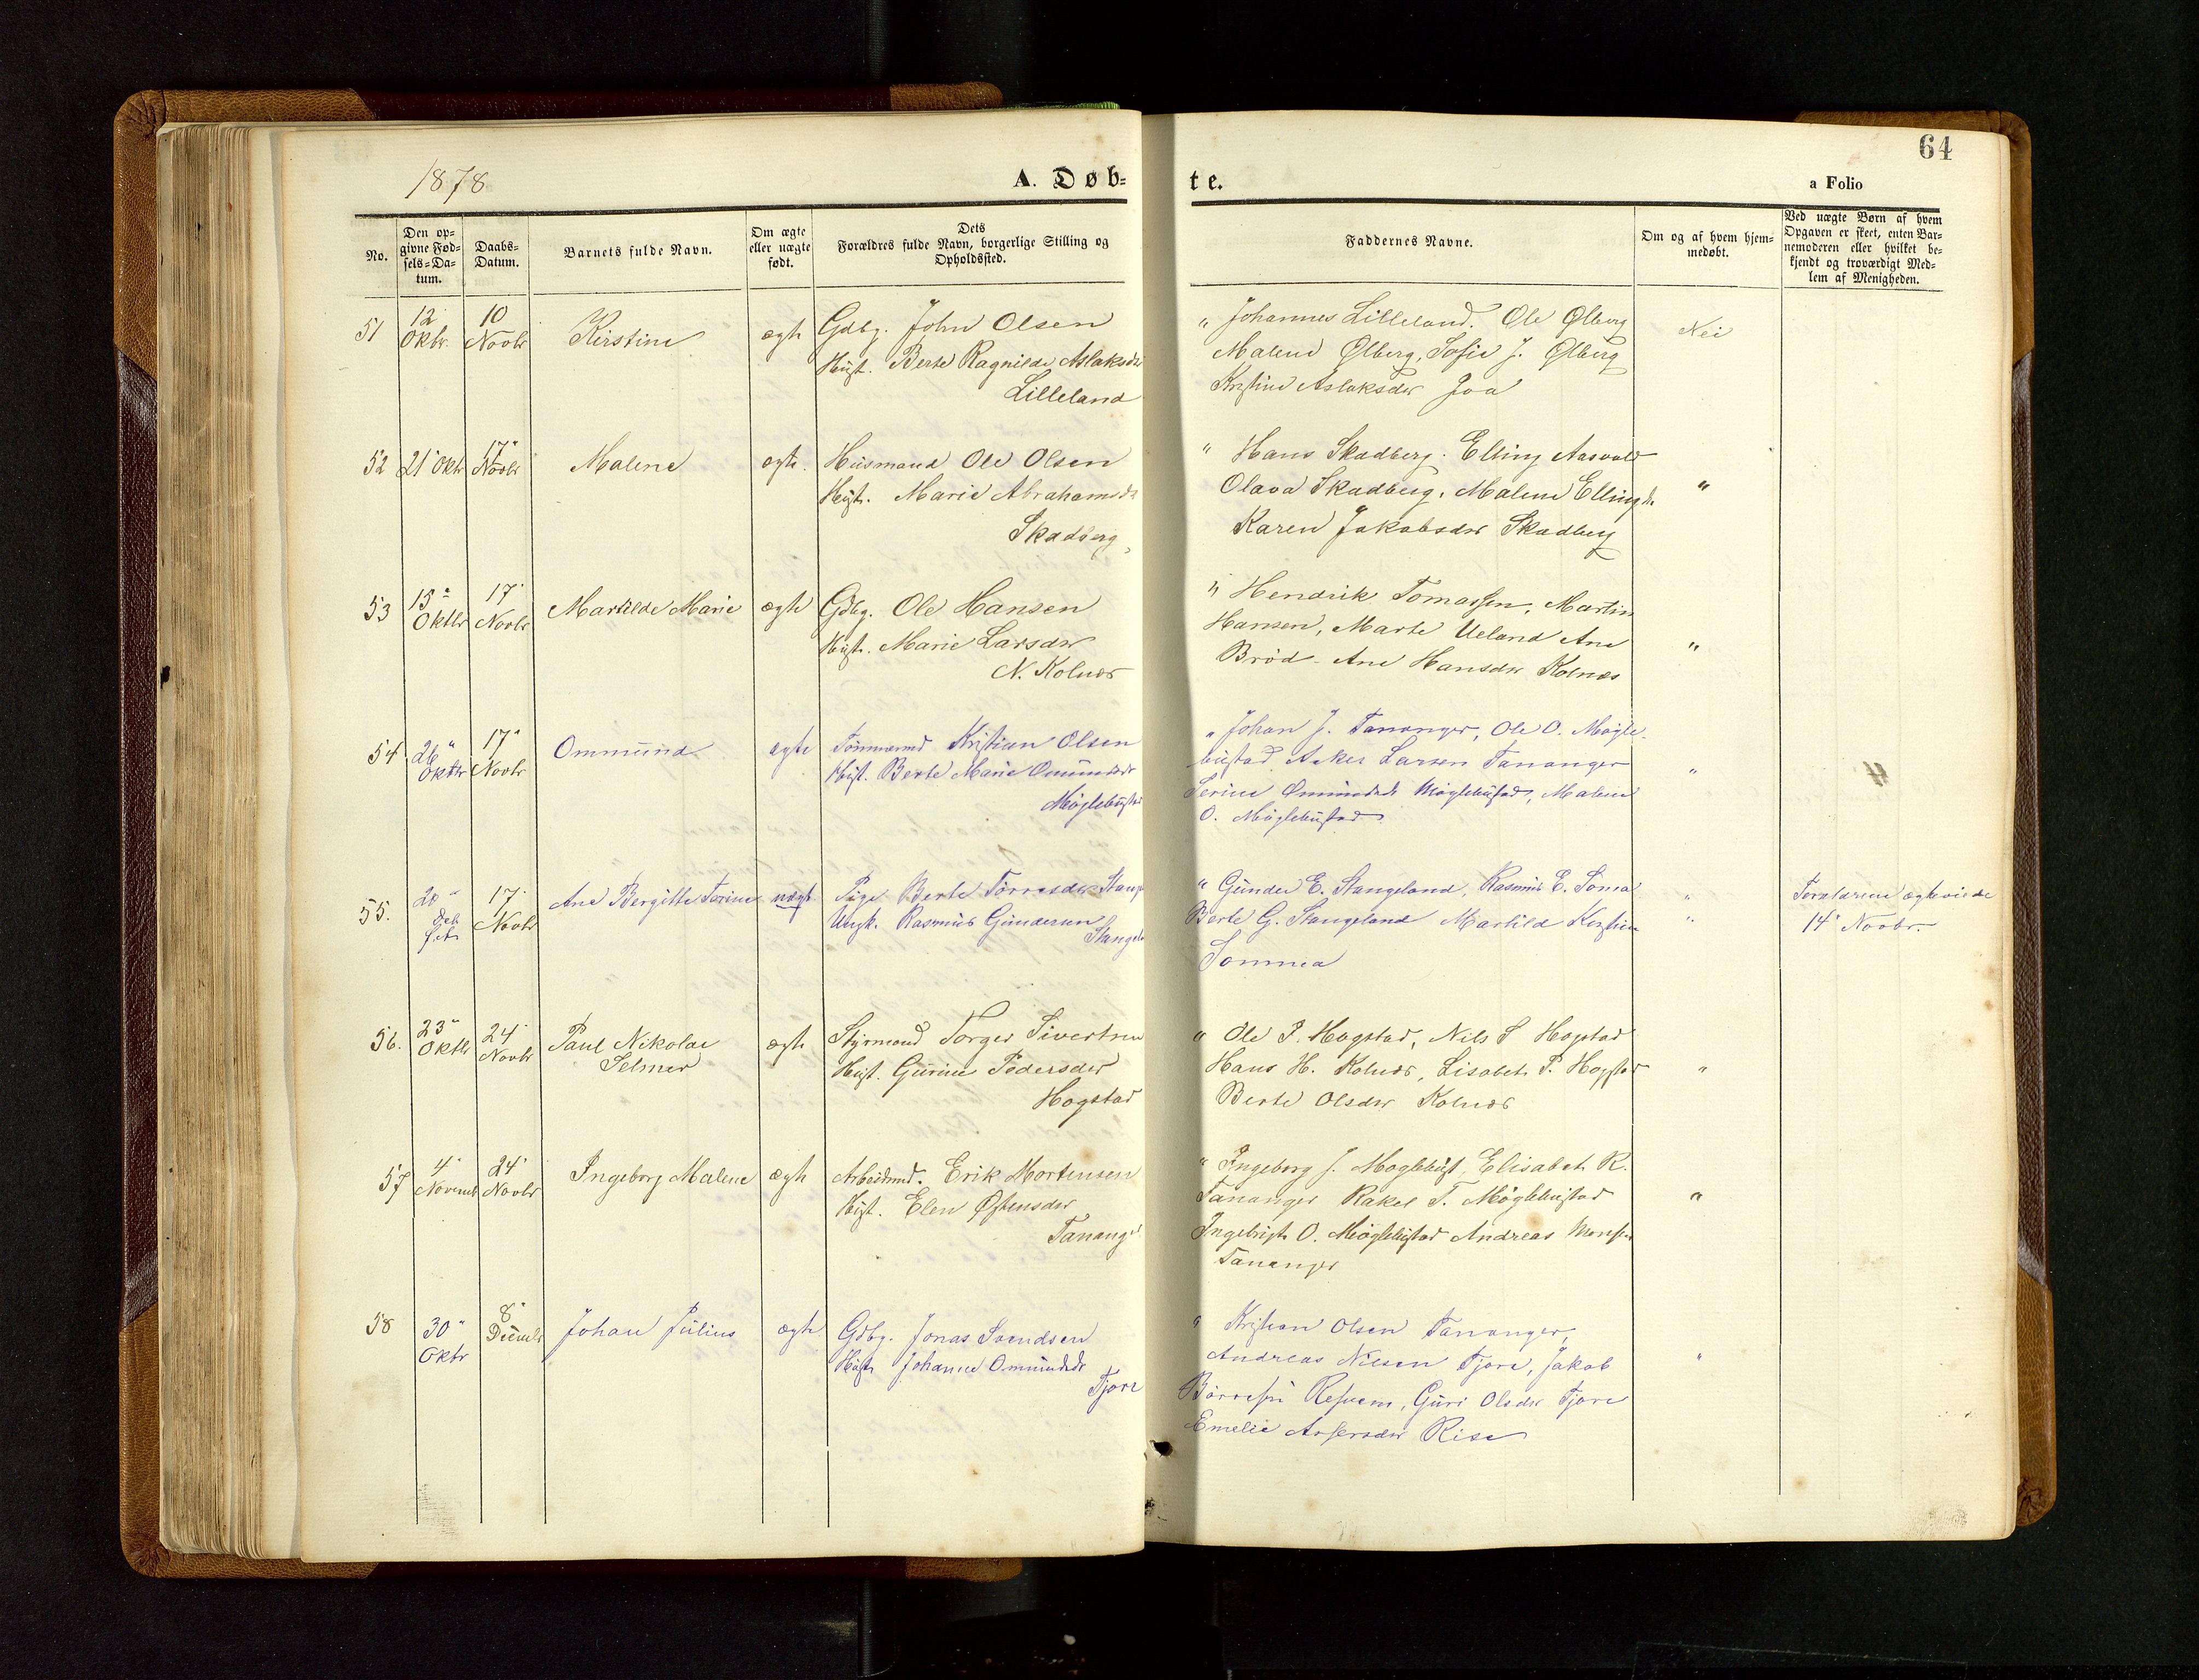 64
1878
A. Døb-
te.
a Folio
No.
Den op-
givne Fød-
sels-Da-
tum.
Daabs-
Datum.
Barnets fulde Navn.
Om ægte
eller uægte
født.
Dets
Forældres fulde Navn, borgerlige Stilling og
Opholdssted.
Faddernes Navne.
Om og af hvem hjem-
medøbt.
Ved uægte Børn af hvem
Opgaven er skeet, enten Bar-
nemoderen eller hvilket be-
kjendt og troværdigt Med-
lem af Menigheden.
51
12
Oktbr.
10
Novbr
Kirstine
ægte
Gdbg. John Olsen
Hust. Berte Ragnilde Aslaksdr
Lilleland
" Johannes Lilleland. Ole Ølberg
Malene Ølberg, Sofie J. Ølberg
Kristine Aslaksdr Joa
Nei
52
21 Oktr
17"
Novbr
Malene
ægte.
Husmand Ole Olsen
Hust. Marie Abrahamsdr
Skadberg,
" Hans Skadberg. Elling Aasvold
Olava Skadberg, Malene Ellingdr.
Karen Jakobsdr Skadberg
"
53
15"
Oktbr
17"
Novbr
Martilde Marie
ægte
Gdbg. Ole Hansen
Hust. Marie Larsdr
N. Kolnæs
" Hendrik Tomassen, Martin
Hansen, Marte Ueland Ane
Brød - Ane Hansdr Kolnæs
"
54
26"
Oktbr
17"
Novbr
Ommund
ægte
Tømmermd Kristian Olsen
Hust. Berte Marie Omundsdr
Møglebustad
" Johan J. Tananger, Ole O. Møgle-
bustad Larsen Tananger
Serine Omundsdr Møglebustad, Malene
O. Møglebustad
"
55.
20"
17"
Novbr
Ane Bergitte Torine
uægt.
Pige Berte Torresdr Stangel
Ungk. Rasmus Gundersen
Stangel
" Gunder E. Stangeland, Rasmus E. Soma
Berte G. Stangeland Martild Kristine
Somma
"
"
Forældrene ægteviede
14" Novbr.
56.
23"
Oktbr
24"
Novbr
Paul Nikolai
Selmer
ægte
Styrmand Torger Sivertsen
Hust. Gurine Pedersdr
Hogstad
" Ole P. Hogstad, Nils S Hogstad
Hans H. Kolnæs, Lisabet P. Hogstad
Berte Olsdr Kolnæs
"
57
4"
Novembr
24"
Novbr
Ingeborg Malene
ægte
Arbeidsmd. Erik Mortensen
Hust. Elen Østensdr
Tananger
" Ingeborg J. Moglebust, Elisabet R.
Tananger Rakel T. Møglebustad
Ingebrigt O. Møglebustad Andreas Monsen
Tananger
"
58
30"
Oktbr
8"
Decembr
Johan Julius
ægte
Gdbg. Jonas Svendsen
Hust Johanne Omundsdr
Tjore
" Kristian Olsen Tananger,
Andreas Nilsen Tjore, Jakob
Børresen Resvem, Guri Olsdr Tjore
Emelie Assersdr Risa
"